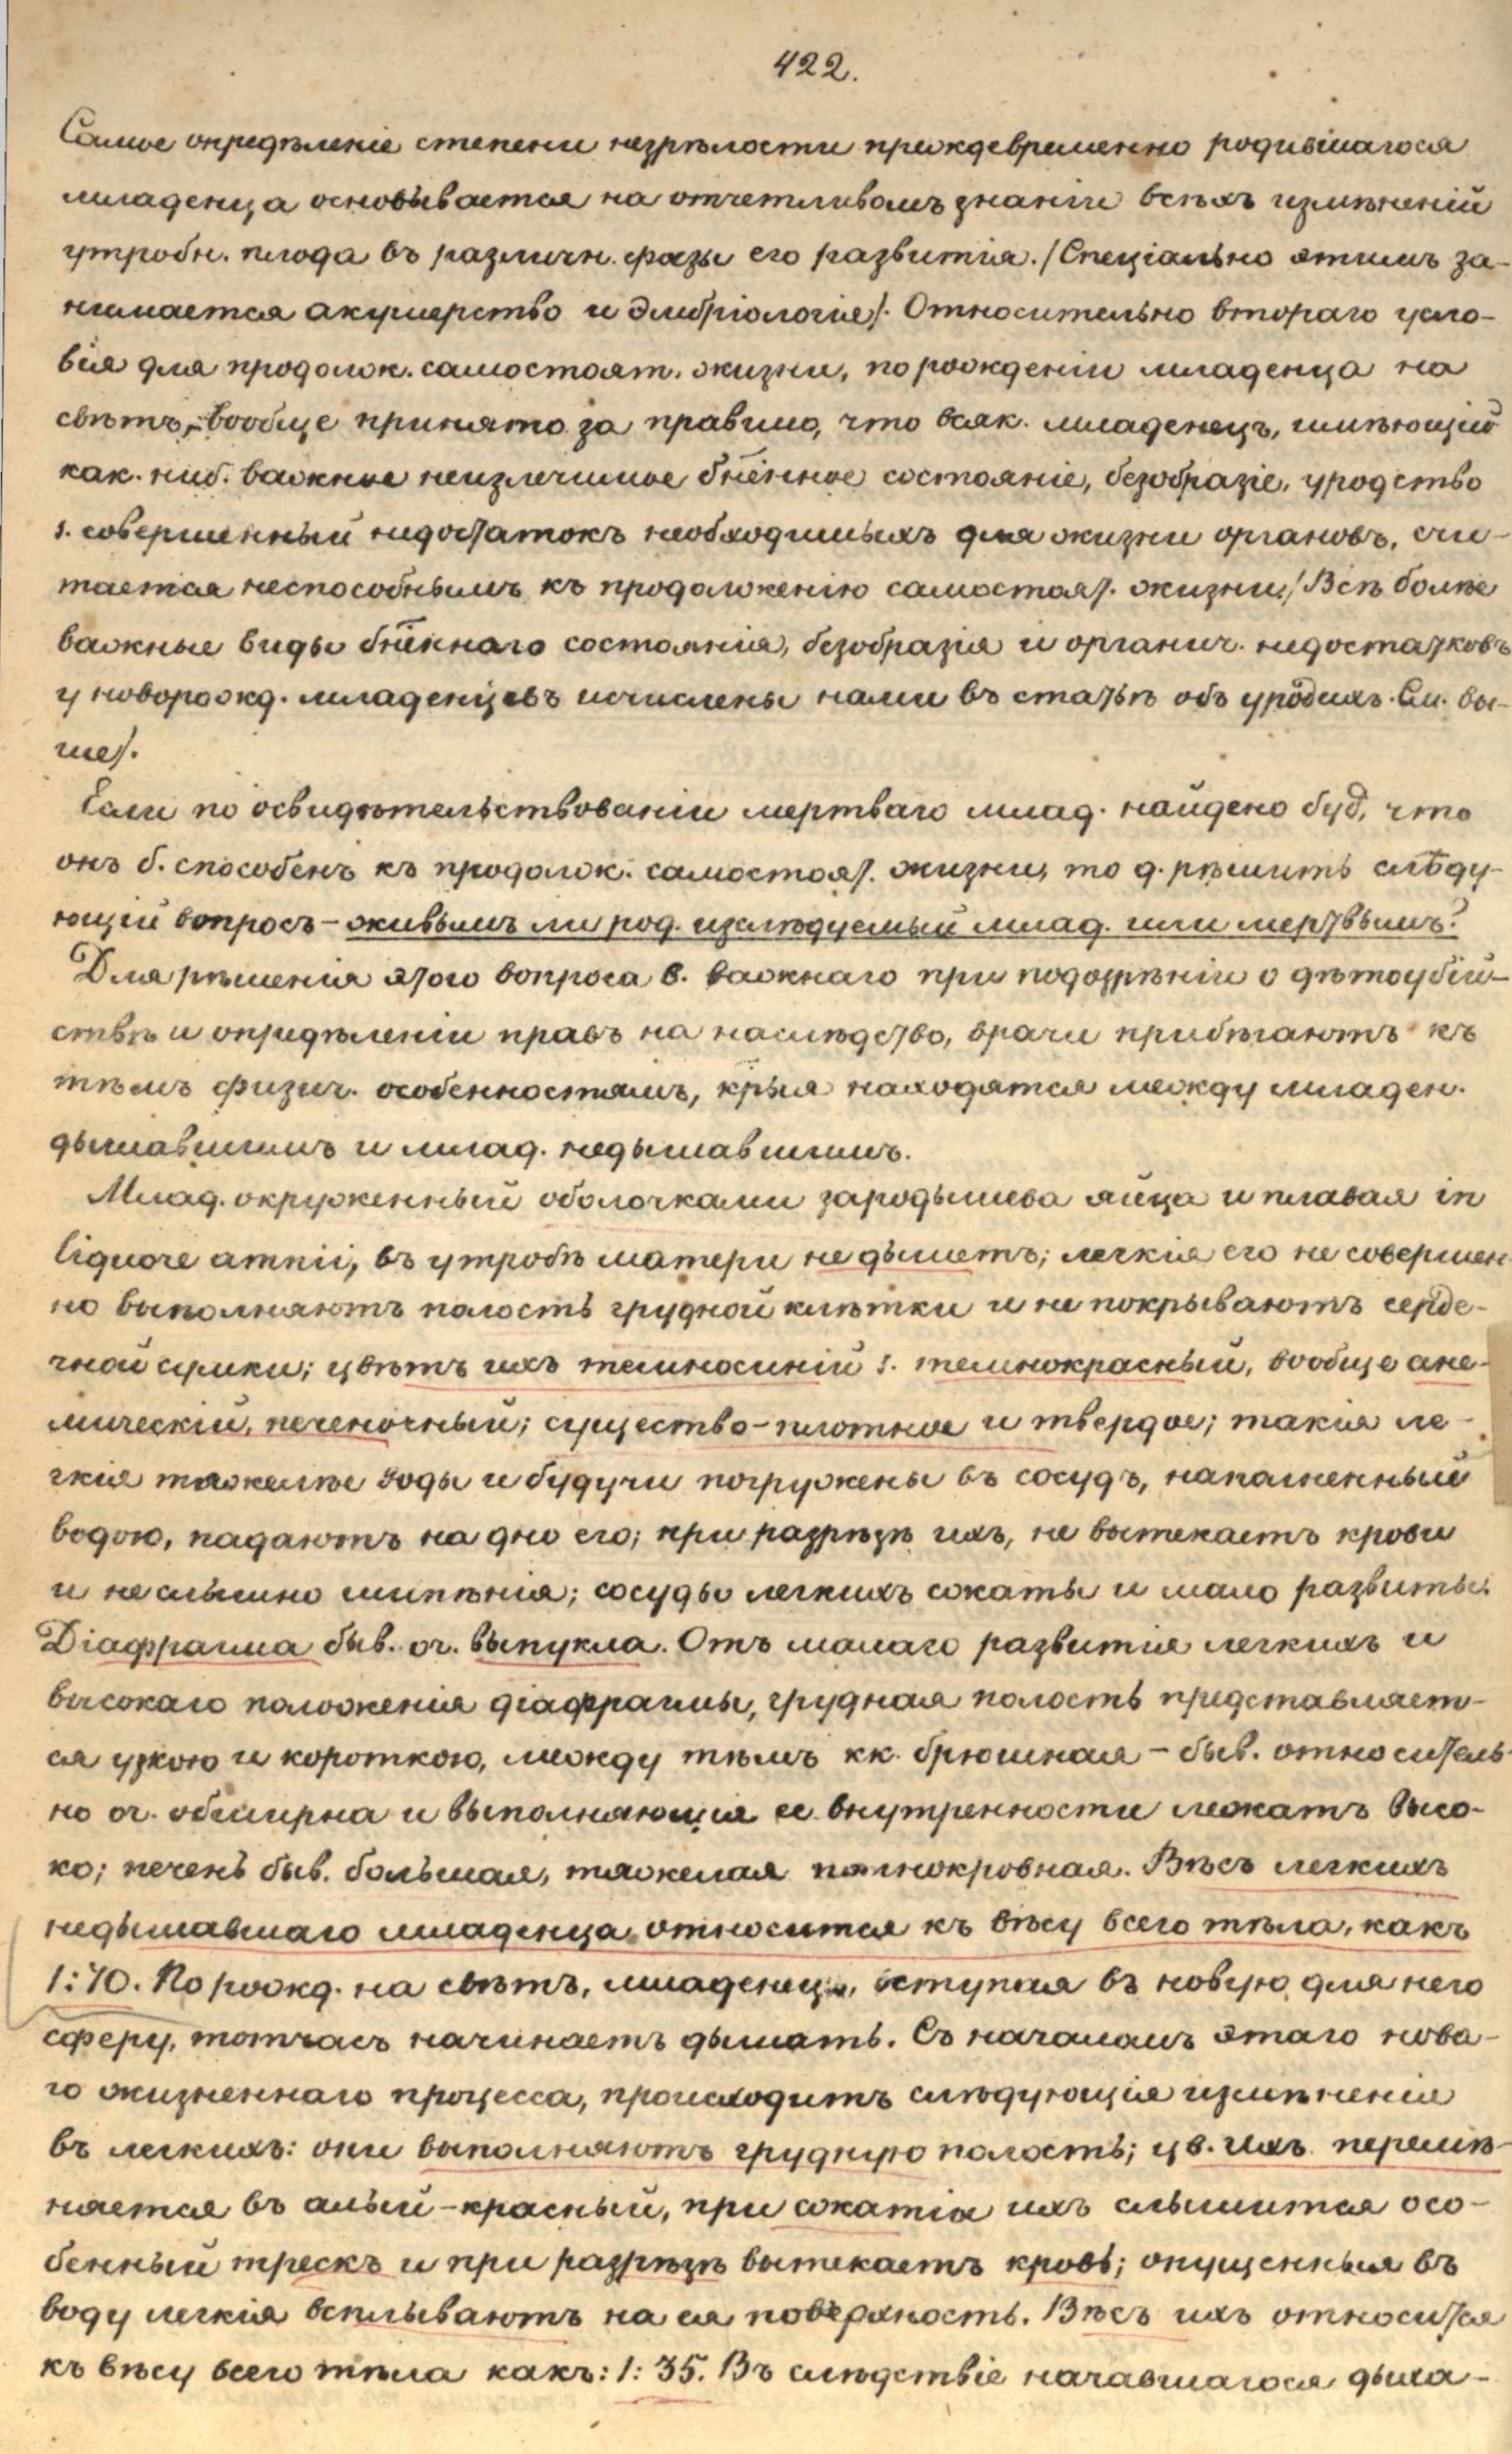 422.
Самое опредѣленіе степени незрѣлости преждевременно родившагося
младенца основывается на отчетливомъ знаніи всѣхъ измѣненій
утробн. плода въ различн. фазы его развитія. /Спеціально этимъ за-
нимается акушерство и Эмбріологія/. Относительно втораго усло-
вія для продолж. самостоят. жизни, по рожденіи младенца на
свѣтъ, - вообще принято за правило, что всяк. младенецъ, имѣющій
как. ниб. важное неизлечимое бнѣнное состояніе, безобразіе, уродство
s. совершенный недостатокъ необходимыхъ для жизни органовъ, счи-
тается неспособнымъ къ продолженію самостоят. жизни /Всѣ болѣе
важные виды бнѣннаго состоянія, безобразія и органич. недостатковъ
у новорожд. младенцевъ исчислены нами въ статьѣ объ уродахъ. См. вы-
ше/.
Если по освидѣтельствованіи мертваго млад. найдено буд, что
онъ б. способенъ къ продолж. самостоят. жизни, то д. рѣшить слѣду-
ющій вопросъ - живымъ ли род. изслѣдуемый млад. или мертвымъ?
Для рѣшенія этого вопроса в. важнаго при подозрѣніи о дѣтоубій-
ствѣ и опредѣленіи правъ на наслѣдство, врачи прибѣгаютъ къ
тѣмъ физич. особенностямъ, крыя находятся между младен.
дышавшимъ и млад. недышавшимъ.
Млад. окруженный оболочками зародышева яйца и плавая in
liquore amnii, въ утробѣ матери не дышетъ; легкія его не совершен-
но выполняютъ полость грудной клѣтки и не покрываютъ серде-
чной сумки; цвѣтъ ихъ темносиній s. темнокрасный, вообще ане-
мическій, печеночный; существо - плотное и твердое; такія ле-
гкія тяжелѣе воды и будучи погружены въ сосудъ, наполненный
водою, падаютъ на дно его; при разрѣзѣ ихъ, не вытекаетъ крови
и не слышно шипѣнія; сосуды легкихъ сжаты и мало развиты.
Діафрагма быв. оч. выпукла. Отъ малаго развитія легкихъ и
высокаго положенія діафрагмы, грудная полость представляет-
ся узкою и короткою, между тѣмъ кк. брюшная - быв. относитель-
но оч. обширна и выполняющія ее внутренности лежатъ высо-
ко; печень быв. большая, тяжелая полнокровная. Вѣсъ легкихъ
недышавшаго младенца относится къ вѣсу всего тѣла, какъ
1:70. По рожд. на свѣтъ, младенецъ, вступая въ новую для него
сферу, тотчасъ начинаетъ дышать. Съ началомъ этаго нова-
го жизненнаго процесса, происходитъ слѣдующія измѣненія
въ легкихъ: они выполняютъ грудную полость; цв. ихъ перемѣ-
няется въ алый - красный, при сжатіи ихъ слышится осо-
бенный трескъ и при разрѣзѣ вытекаетъ кровь; опущенныя въ
воду легкія всплываютъ на ея поверхность. Вѣсъ ихъ относится
къ вѣсу всего тѣла какъ: 1: 35. Въ слѣдствіе начавшагося дыха-